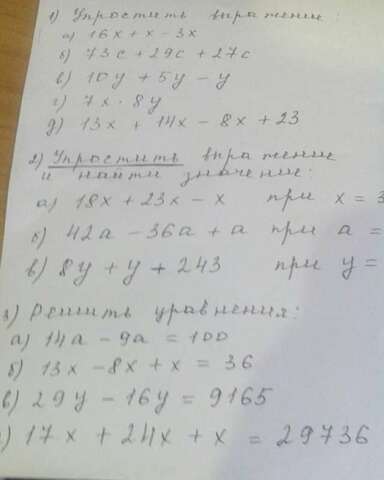 1) Упростить выражение:
а) 16х + х - 3х
б) 73с + 29с + 27с
в) 10у + 5у - у
г) 7х · 8у
д) 13х + 14х - 8х + 23
2) Упростить выражение
и найти значение:
а) 18х + 23х - х при х = 3
б) 42а - 36а + а при а =
в) 8у + у + 243 при у =
3) Решить уравнения:
а) 14а - 9а = 100
б) 13х - 8х + х = 36
в) 29у - 16у = 9165
) 17х + 24х + х = 29736